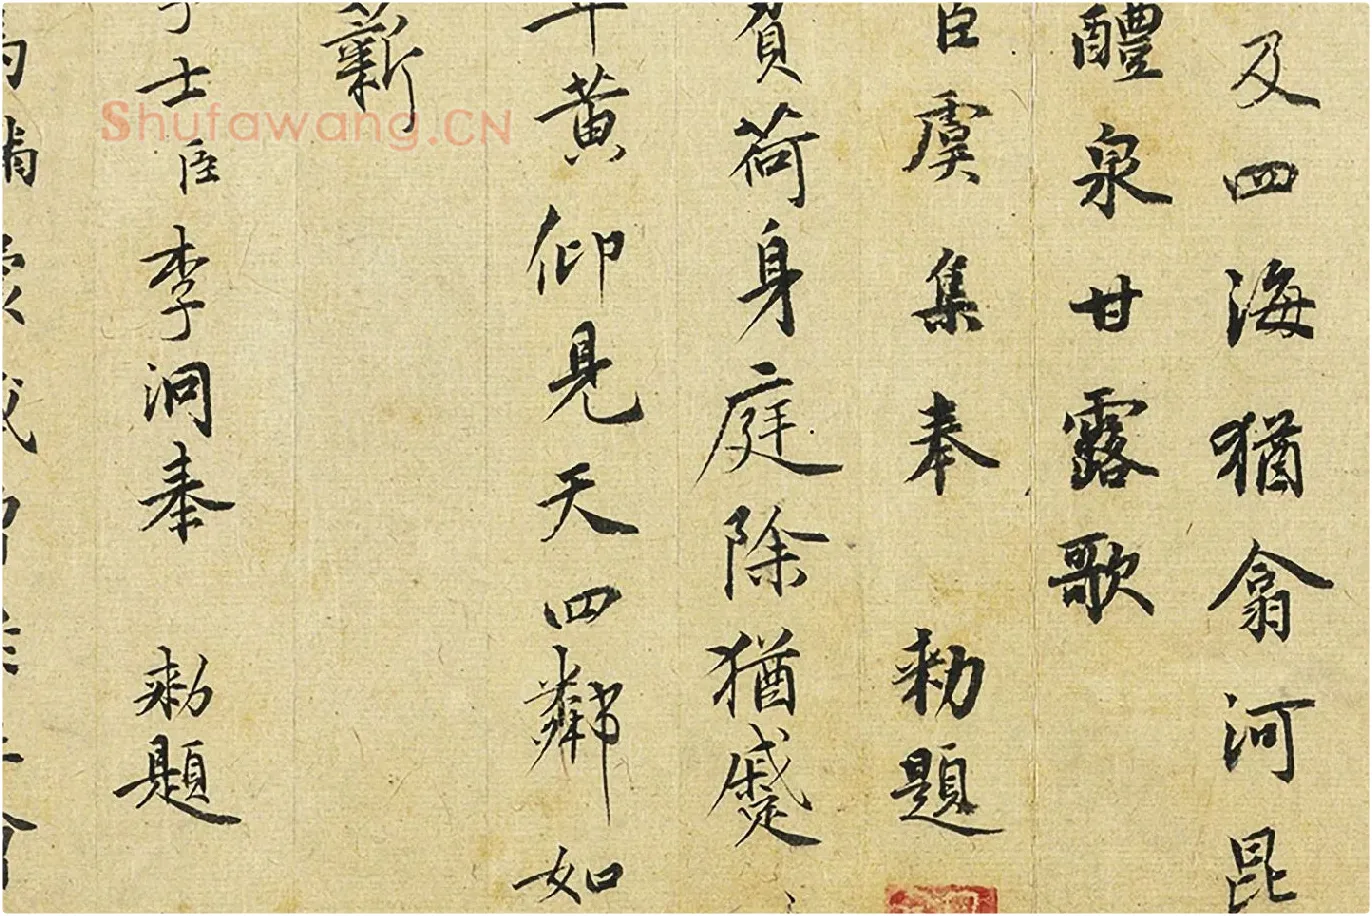 及四海猶翕河昆
醴泉甘露歌
臣虞集奉 勑題
負荷身庭除猶蹙
年黃仰見天四鄰如
新
士臣李泂奉 勑題
Shufawang.CN